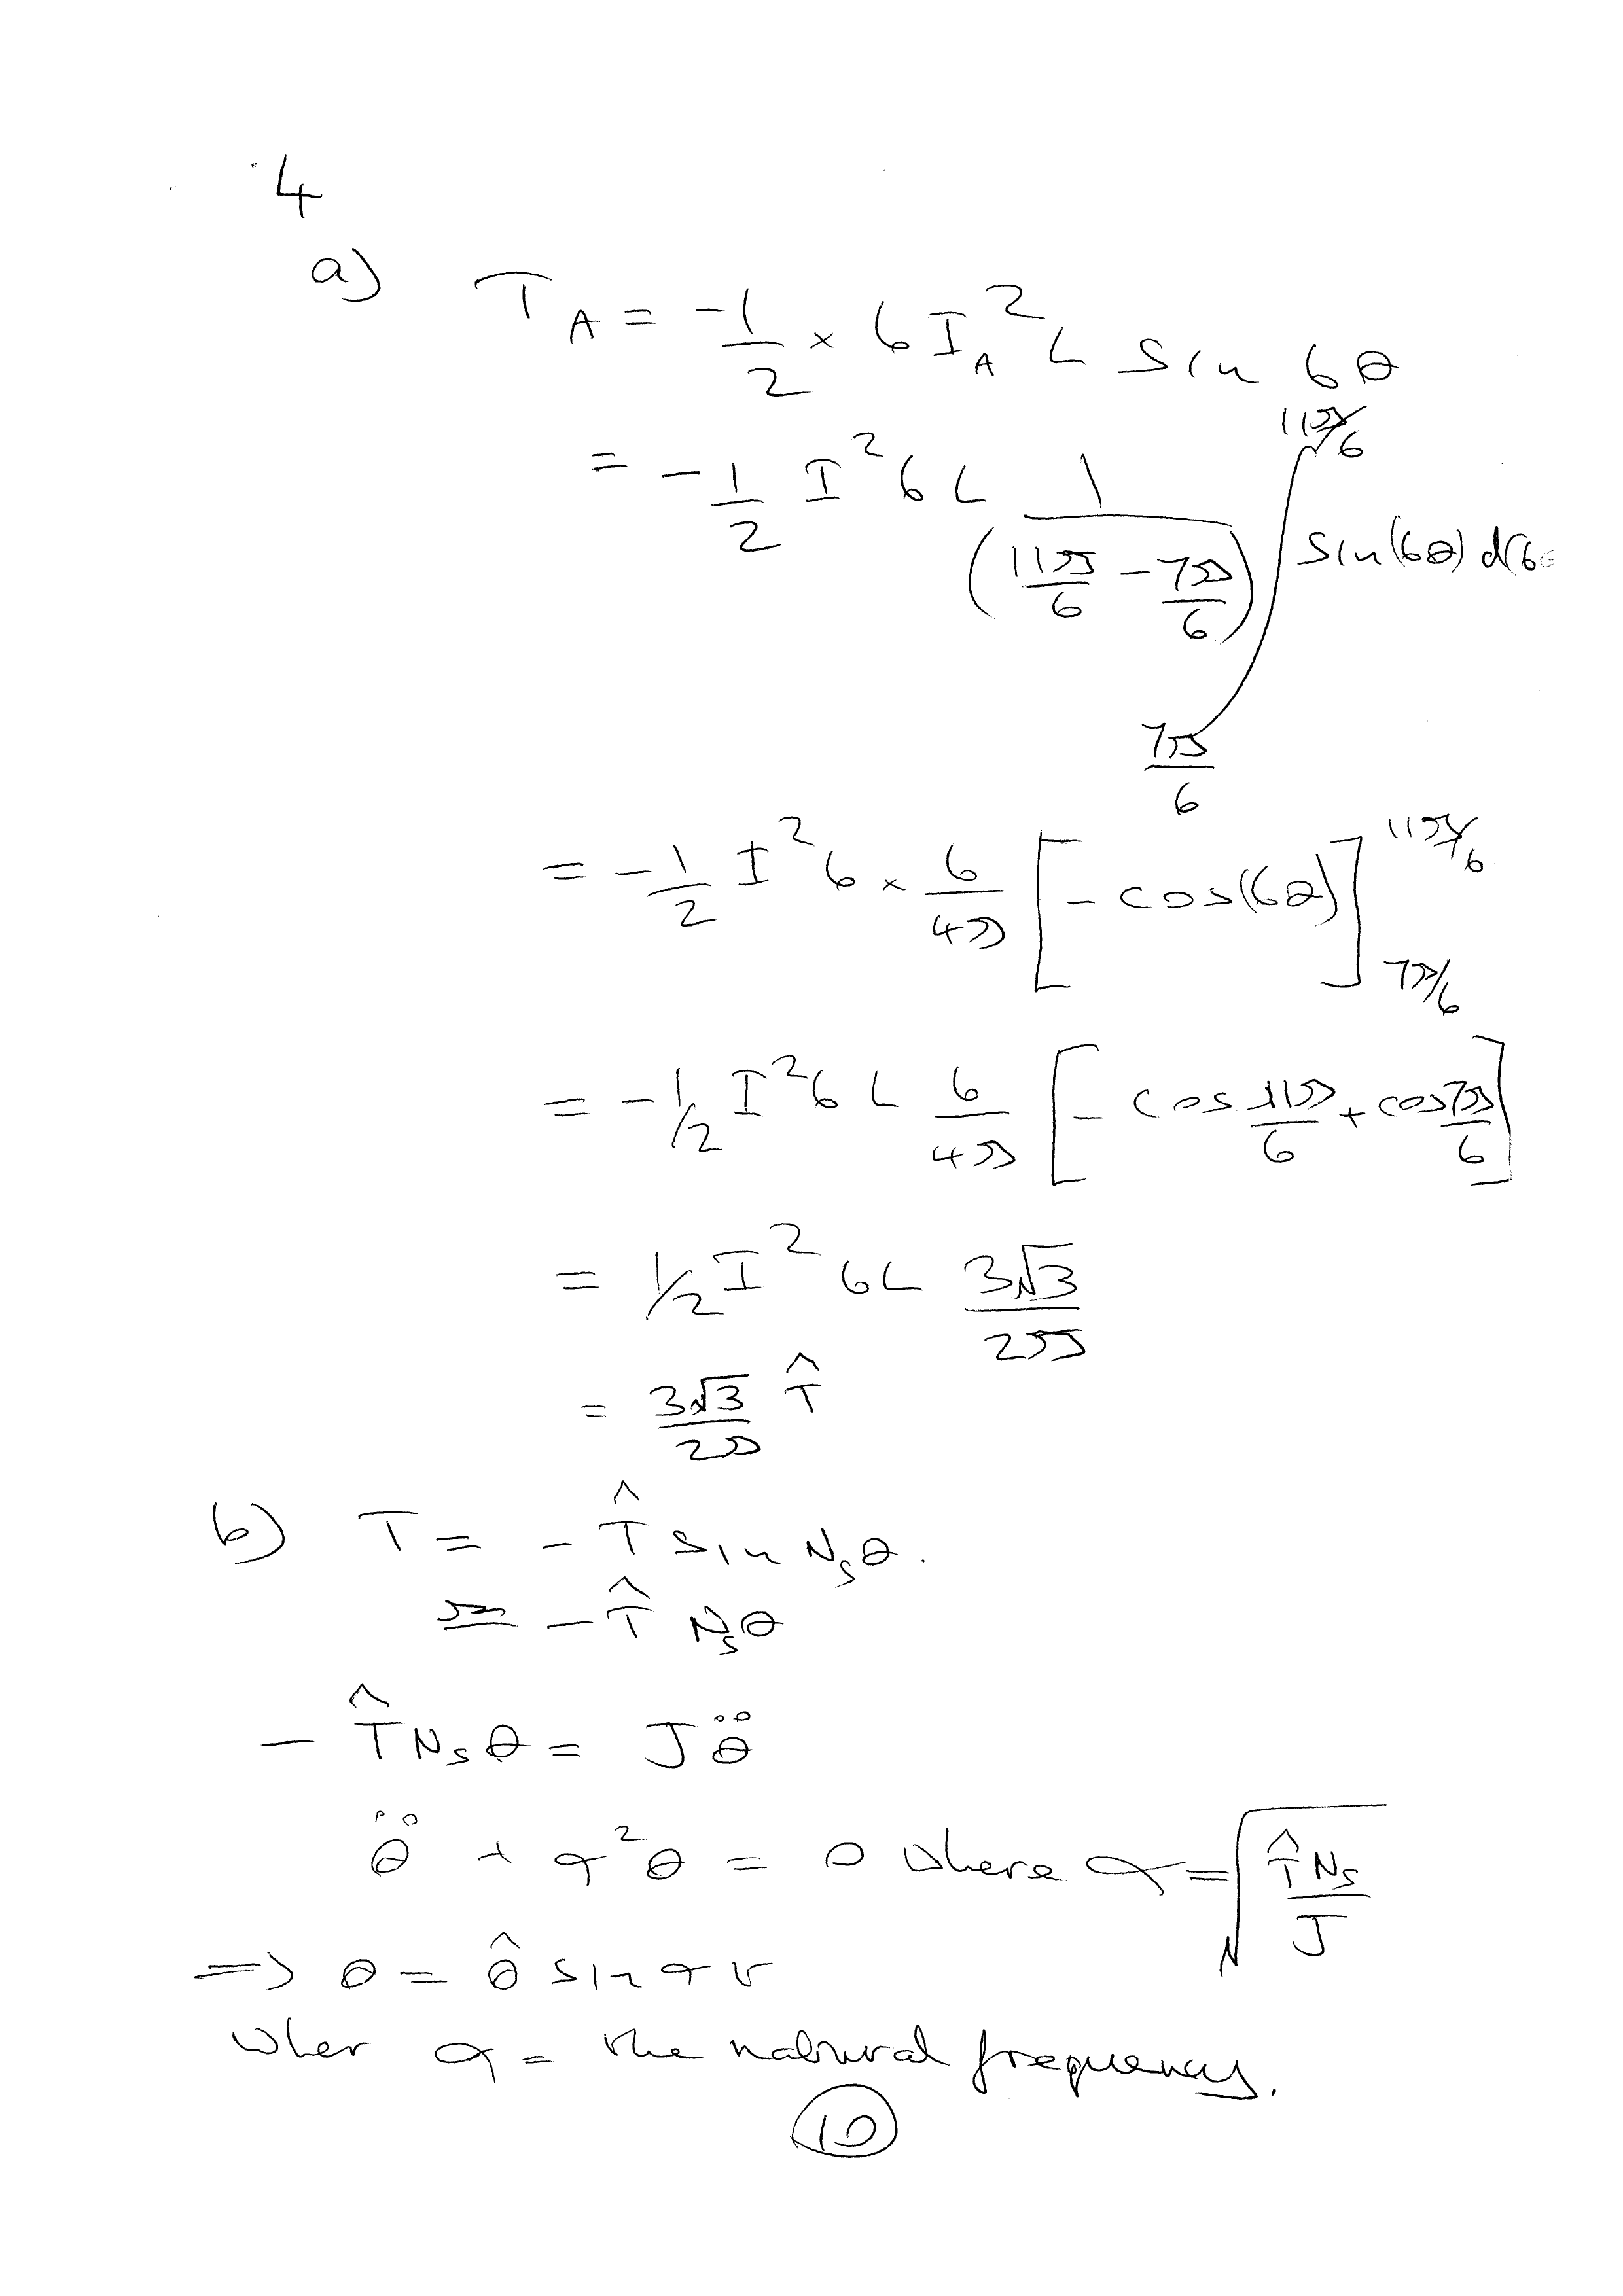 4
a) T_A = -1/2 × 6 I_A² L sin 6θ
= -1/2 I² 6 L 1/(11π/6 - 7π/6) ∫_{7π/6}^{11π/6} sin(6θ) d(6θ
= -1/2 I² 6 × 6/4π [-cos(6θ)]_{7π/6}^{11π/6}
= -1/2 I² 6 L 6/4π [-cos 11π/6 + cos 7π/6]
= 1/2 I² 6L 3√3/2π
= 3√3/2π T̂
b) T = - T̂ sin N_sθ.
≈ - T̂ N_sθ
- T̂ N_s θ = J θ̈
θ̈ + α²θ = 0 where α = √(T̂ N_s/J)
=> θ = θ̂ sin α t
wher α = the natural frequency.
10